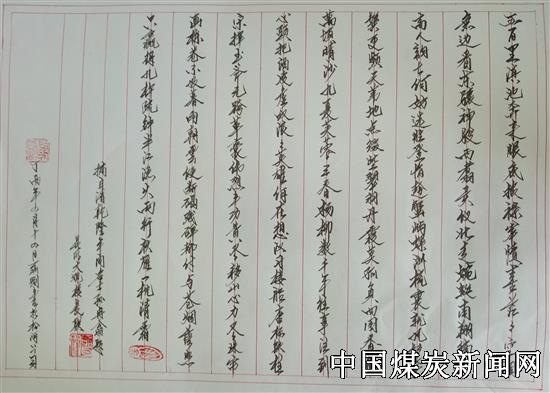 五百里滇池奔来眼底披襟岸帻喜茫茫空阔
无边看东骧神骏西翥灵仪北走蜿蜒南翔缟素
高人韵士何妨选胜登临趁蟹屿螺洲梳裹就风鬟雾
鬓更蘋天苇地点缀些翠羽丹霞莫孤负四围香稻
万顷晴沙九夏芙蓉三春杨柳数千年往事注到
心头把酒凌虚叹滚滚英雄谁在想汉习楼船唐标铁柱
宋挥玉斧元跨革囊伟烈丰功费尽移山心力尽珠帘
画栋卷不及暮雨朝云便断碣残碑都付与苍烟落照
只赢得几杵疏钟半江渔火两行秋雁一枕清霜
摘自清乾隆年间孙髯翁题
昆明大观楼长联
丁酉年六月十四日
中国煤炭新闻网